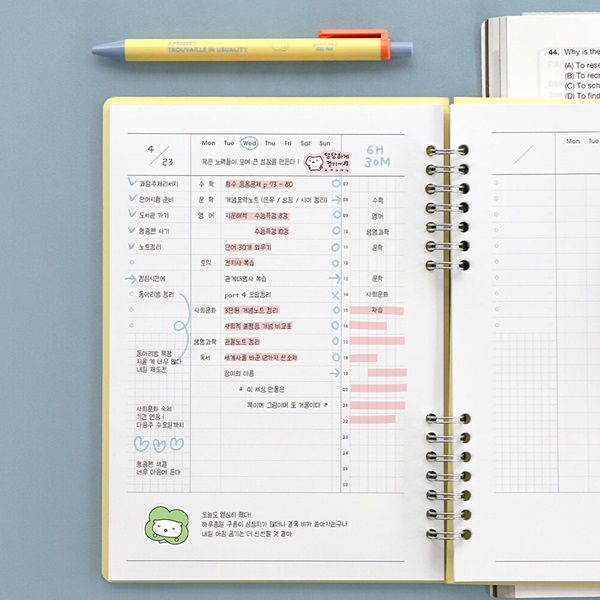 APRICITY
TROUVAILLE IN USUALITY
44. Why is the
(A) To rese
(B) To recr
(C) To sch
(D) To find
4 / 23
Mon Tue Wed Thu Fri Sat Sun
작은 노력들이 모여 큰 성장을 만든다!
당당하게
걷기~♪
6H
30M
과탐주제리서치
단어시험 준비
도서관 가기
형광펜 사기
노트정리
점심시간에
동아리방 정리
수학 함수 응용문제 p 73 - 80
문학 개념요약노트 (은유 / 상징 / 시어 정리)
영어 지문해석 수능특강 8강
수능특강 10강
단어 30개 외우기
토익 전치사 복습
관계대명사 복습
part 4 오답정리
사회문화 3단원 개념노트 정리
사회적 불평등 개념 비교표
생명과학 관찰노트 정리
독서 세계사를 바꾼 12가지 신소재
장미의 이름
이 세상 만물은
책이며 그림이며 또 거울이다
07
08 수학
09 영어
10 생명과학
11 문학
12
13 문학
14 사회문화
15 자습
16
17
18
19
20
21
22
23
24
01
02
동아리방 책장
치울 게 너무 많다
내일 재도전
사회문화 숙제
기간 연장!
다음주 수요일까지
형광펜 색깔
너무 마음에 든다
오늘도 열심히 했다!
하루종일 구름이 심상치가 않더니 결국 비가 쏟아지는구나
내일 아침 공기는 더 신선할 것 같아
Mon Tue